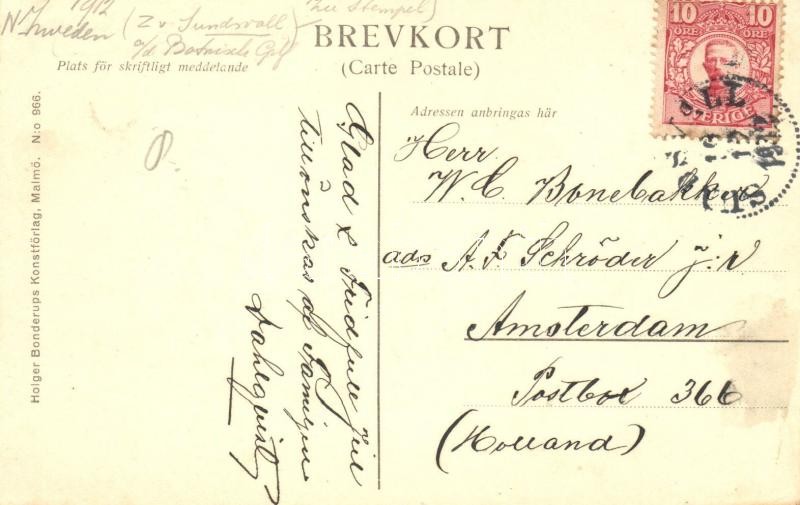 1912
N. Zweden (Z v Sundsvall) Zie Stempel)
a/d Botnische Golf
BREVKORT
(Carte Postale)
Plats för skriftligt meddelande
Adressen anbringas här
10 10
ÖRE ÖRE
SVERIGE
Glad & Fridfull Jul
tillönskas af Familjen
Dahlqvist
Herr
W. C. Bonebakker
ads A. F. Schröder j:r
Amsterdam
Postbox 366
(Holland)
Holger Bonderups Konstförlag, Malmö. N:o 966.